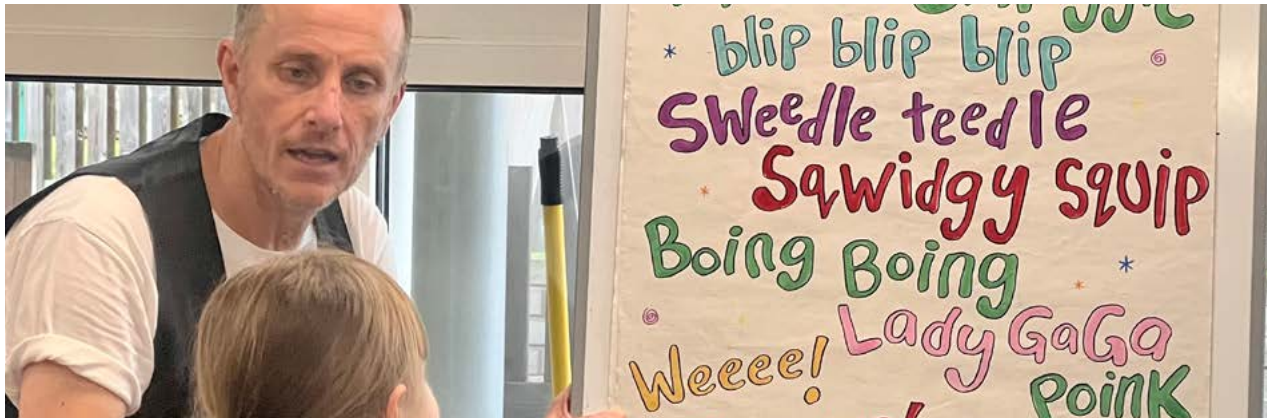 blip blip blip
Sweedle teedle
Sqwidgy squip
Boing Boing
Lady GaGa
Weeee!
Poink